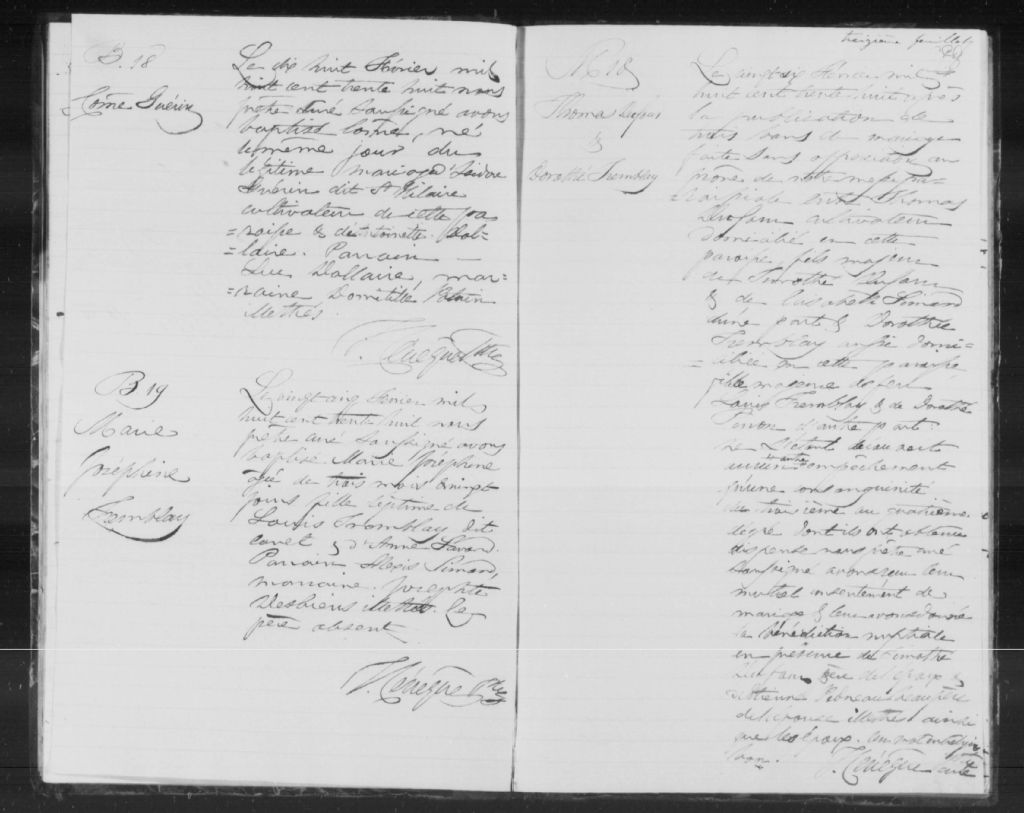 B. 18
Côme Guérin
Le dix huit Février mil
huit cent trente huit nous
prêtre curé soussigné avons
baptisé Côme, né
le même jour du
légitime mariage d'Isidore
Guérin dit St Hilaire
cultivateur de cette pa
=roisse & de Antoinette Dal-
=laire. Parrain
Luc Dallaire, mar-
=raine Domitille
illettrés.
T. Lévêque Ptre
B 19
Marie
Joséphine
Tremblay
Le vingt six Février mil
huit cent trente huit nous
prêtre curé soussigné avons
baptisé Marie Joséphine
âgé de trois mois & vingt
jours fille légitime de
Louis Tremblay dit
& d'Anne Savard.
Parrain Alexis Simard,
marraine Josephte
Desbiens illettrés. Le
père absent.
T. Lévêque Ptre
treizième feuillet
M 10
Thomas Dufour
&
Dorothé Tremblay
Le vingt six Février mil
huit cent trente huit après
la publication de
trois bans de mariage
faite sans opposition au
prone de notre messe pa-
=roissiale entre Thomas
Dufour cultivateur
domicilié en cette
paroisse, fils majeur
de Timothé Dufour
& de Elisabeth Simard
d'une part & Dorothée
Tremblay aussi domi-
=ciliée en cette paroisse
fille majeure de feu
Louis Tremblay & de Dorothé
d'autre part:
ne s'étant découvert
aucun autre empêchement
qu'une consanguinité
du troisième au quatrième
degré dont ils ont obtenu
dispense nous prêtre curé
soussigné avons reçu leur
mutuel consentement de
mariage & leur avons donné
la bénédiction nuptiale
en présence de Timothé
Dufour père de l'époux &
d'Etienne beaupère
de l'épouse illettrés ainsi
que les époux.
bon.
T. Lévêque Ptre